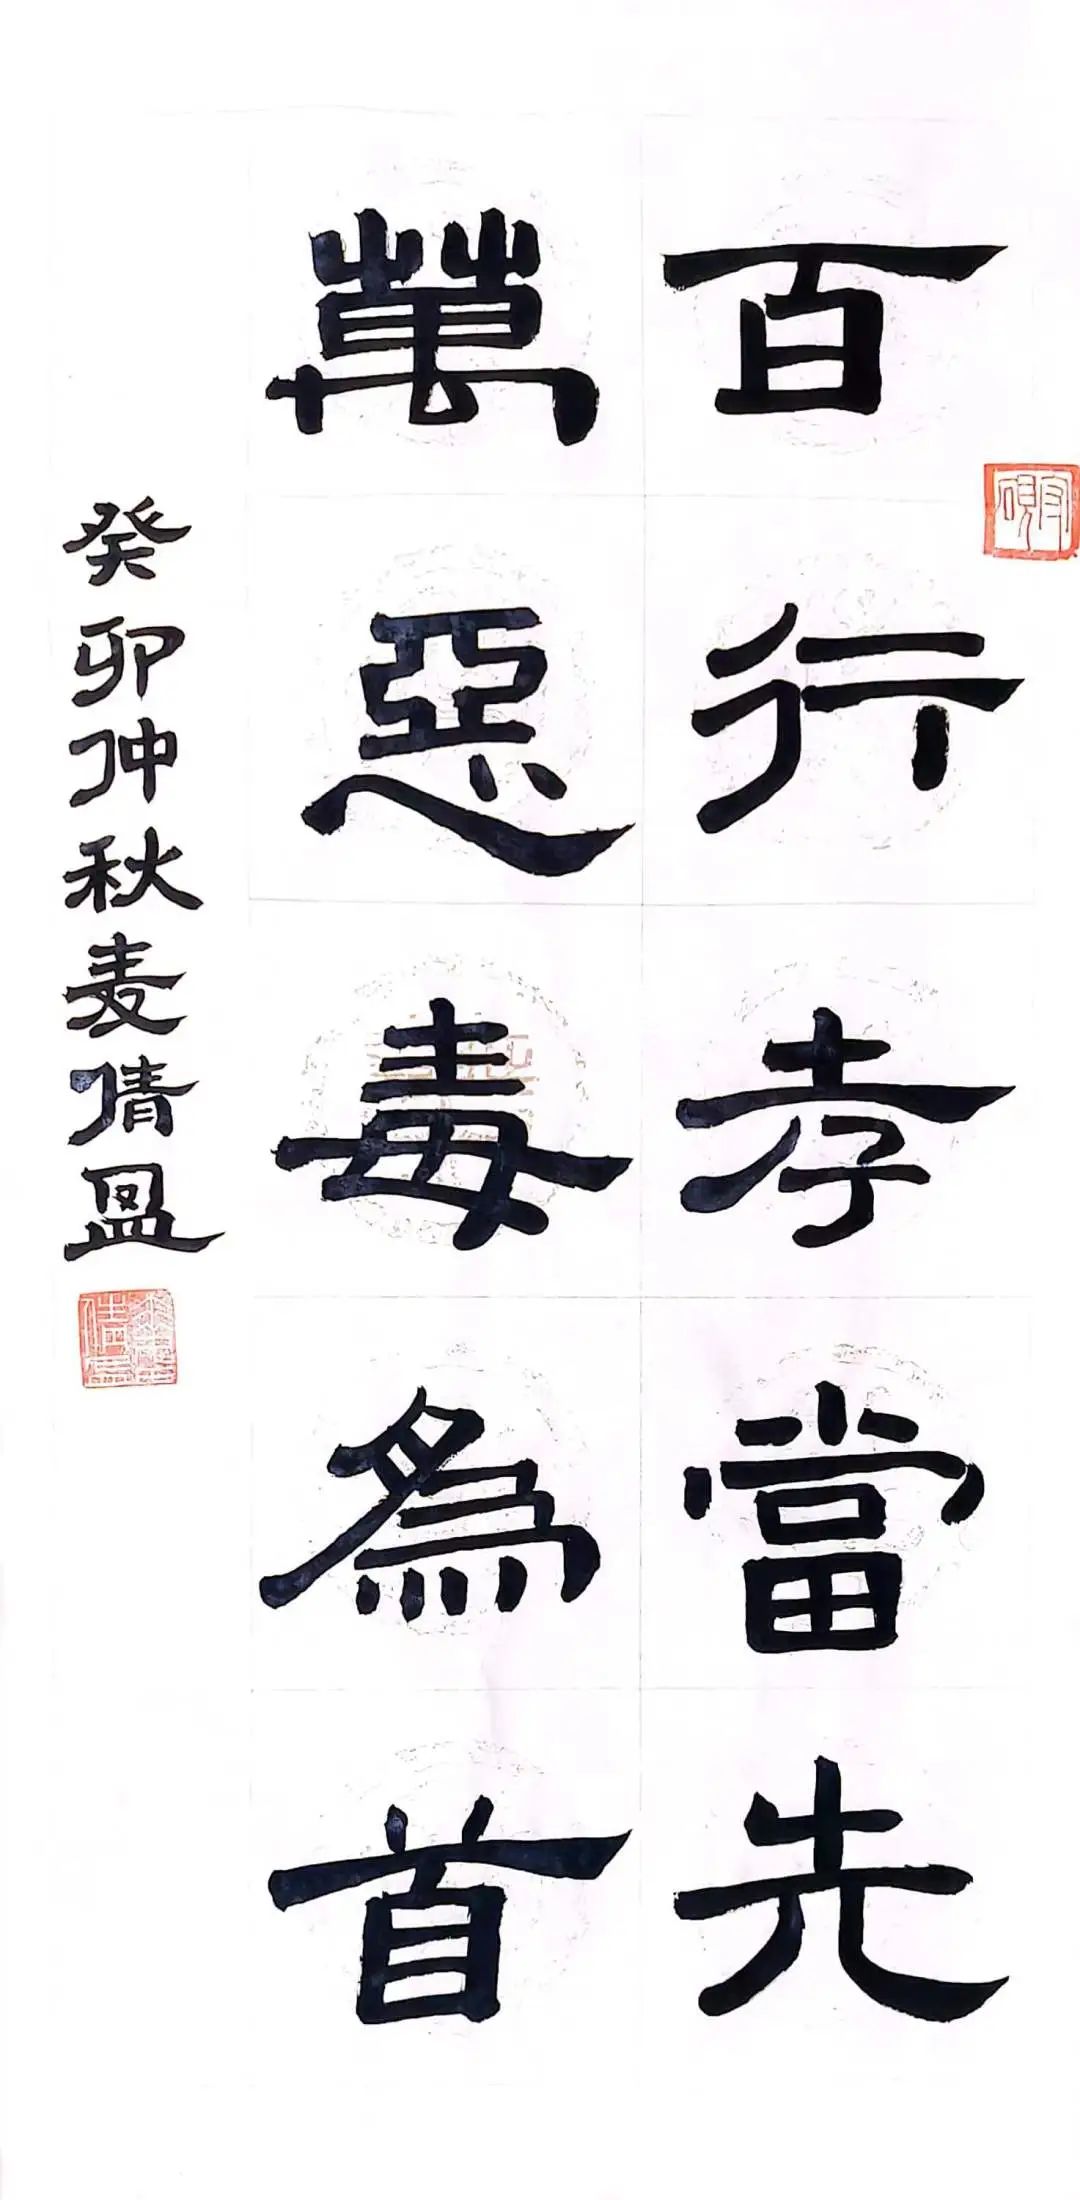 百行孝當先
萬惡毒爲首
癸卯仲秋麦倩盈